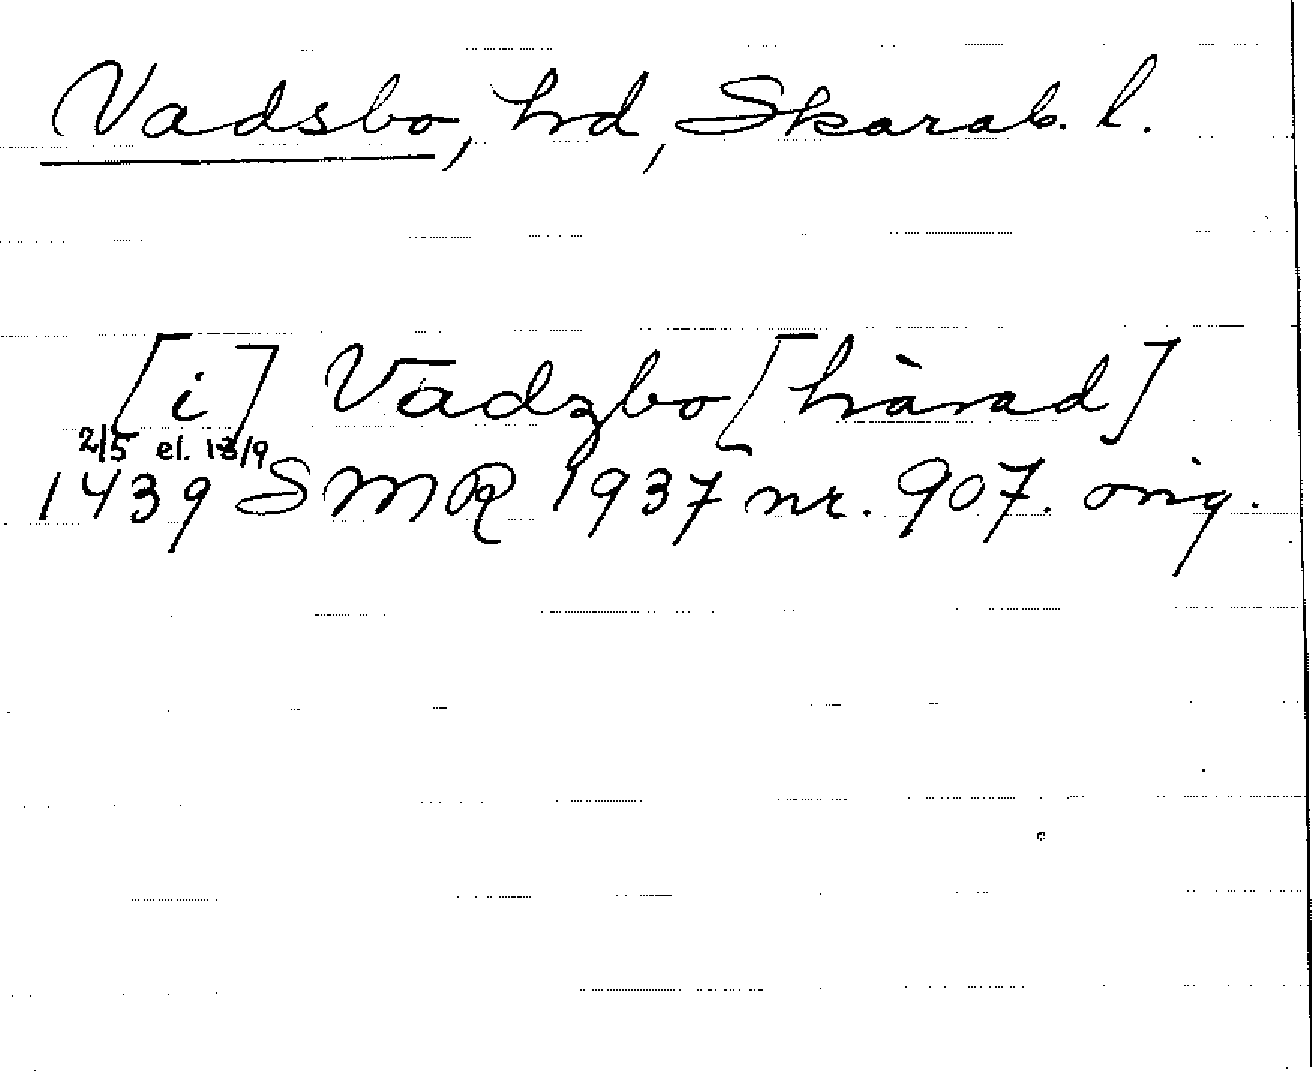 Vadsbo, hd, Skarab. l.
[i] Vadzbo [härad]
2/5 el. 13/9
1439 SMR 1937 nr. 907. orig.